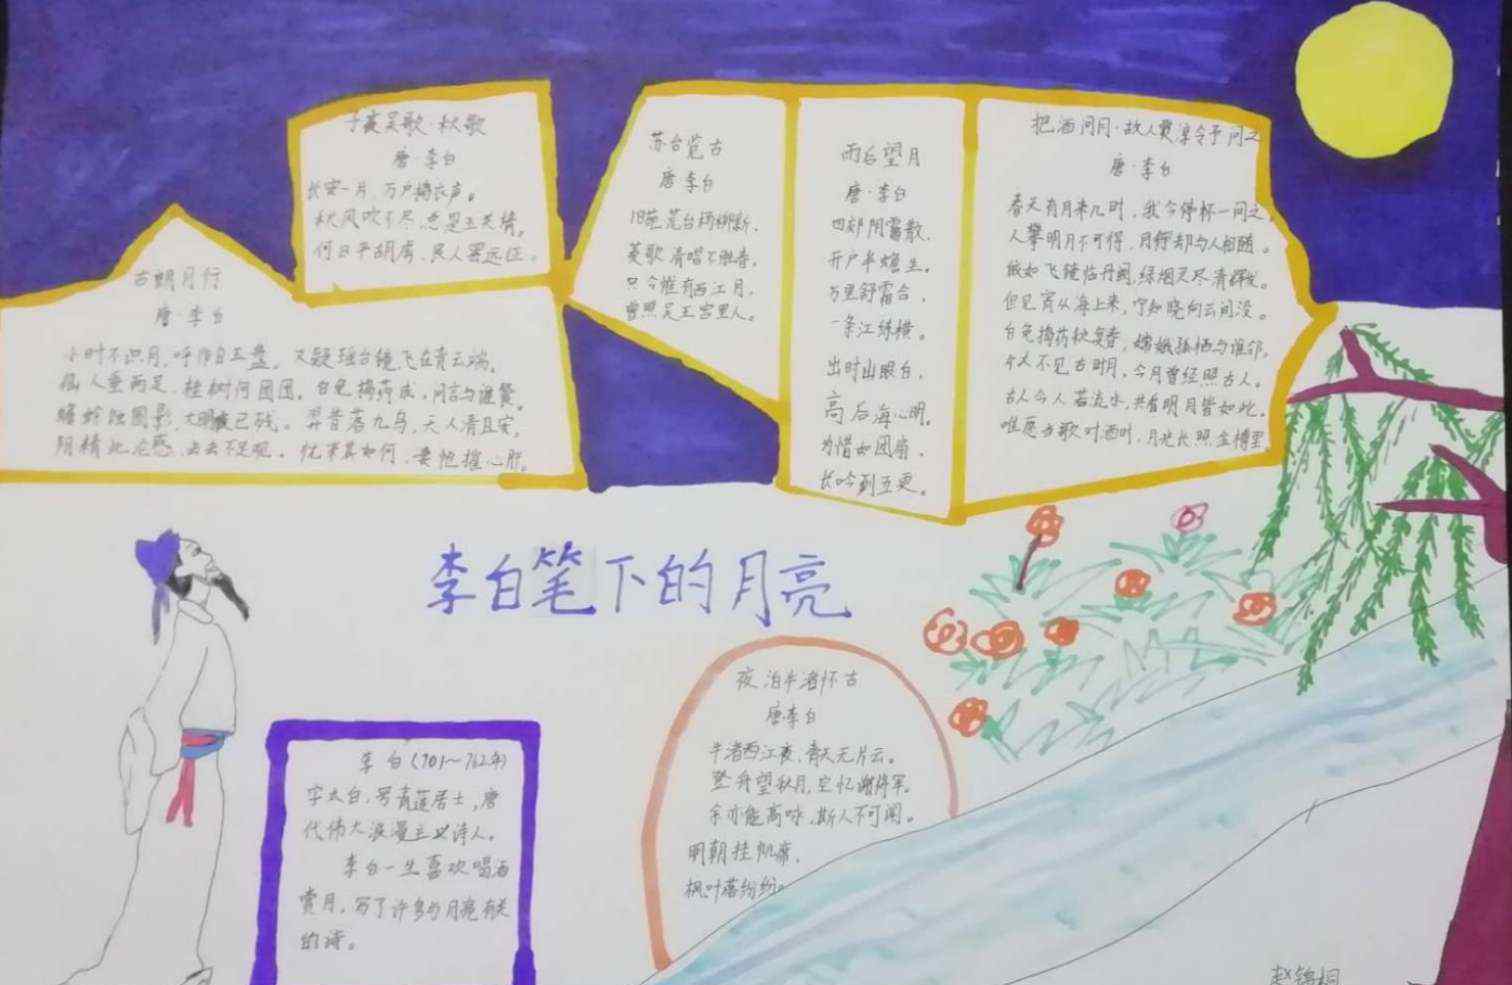 子夜吴歌·秋歌
唐·李白
长安一片,万户捣衣声。
秋风吹不尽,总是玉关情。
何日平胡虏,良人罢远征。
苏台览古
唐 李白
旧苑荒台杨柳新,
菱歌清唱不胜春。
只今惟有西江月,
曾照吴王宫里人。
雨后望月
唐·李白
四郊阴霭散,
开户半蟾生。
万里舒霜合,
一条江练横。
出时山眼白,
高后海心明。
为惜如团扇,
长吟到五更。
把酒问月·故人贾淳令予问之
唐·李白
青天有月来几时,我今停杯一问之。
人攀明月不可得,月行却与人相随。
皎如飞镜临丹阙,绿烟灭尽清辉发。
但见宵从海上来,宁知晓向云间没。
白兔捣药秋复春,嫦娥孤栖与谁邻。
今人不见古时月,今月曾经照古人。
古人今人若流水,共看明月皆如此。
唯愿当歌对酒时,月光长照金樽里
古朗月行
唐·李白
小时不识月,呼作白玉盘。又疑瑶台镜,飞在青云端。
仙人垂两足,桂树何团团。白兔捣药成,问言与谁餐。
蟾蜍蚀圆影,大明夜已残。羿昔落九乌,天人清且安。
阴精此沦惑,去去不足观。忧来其如何,凄怆摧心肝。
李白笔下的月亮
李白(701~762年)
字太白,号青莲居士,唐
代伟大浪漫主义诗人。
李白一生喜欢喝酒
赏月,写了许多与月亮有关
的诗。
夜泊牛渚怀古
唐·李白
牛渚西江夜,青天无片云。
登舟望秋月,空忆谢将军。
余亦能高咏,斯人不可闻。
明朝挂帆席,
枫叶落纷纷。
赵锦桐